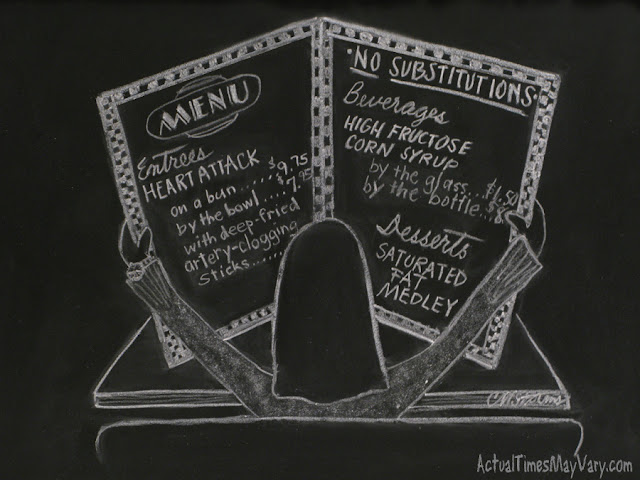 MENU
Entrees
HEART ATTACK
on a bun..... $9.75
by the bowl.... $7.95
with deep-fried
artery-clogging
sticks.....
·NO SUBSTITUTIONS·
Beverages
HIGH FRUCTOSE
CORN SYRUP
by the glass... $1.50
by the bottle...
Desserts
SATURATED
FAT
MEDLEY
ActualTimesMayVary.com